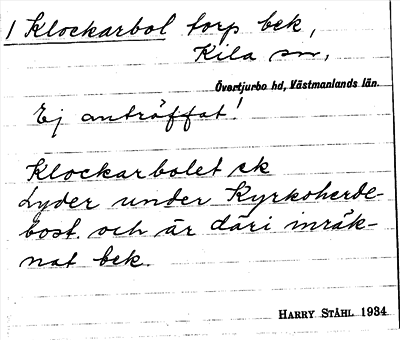 1 Klockarbol torp bek,
Kila sn,
Övertjurbo hd, Västmanlands län.
Ej anträffat!
Klockarbolet ek
lyder under Kyrkoherde-
bost. och är däri inräk-
nat bek.
HARRY STÅHL 1934